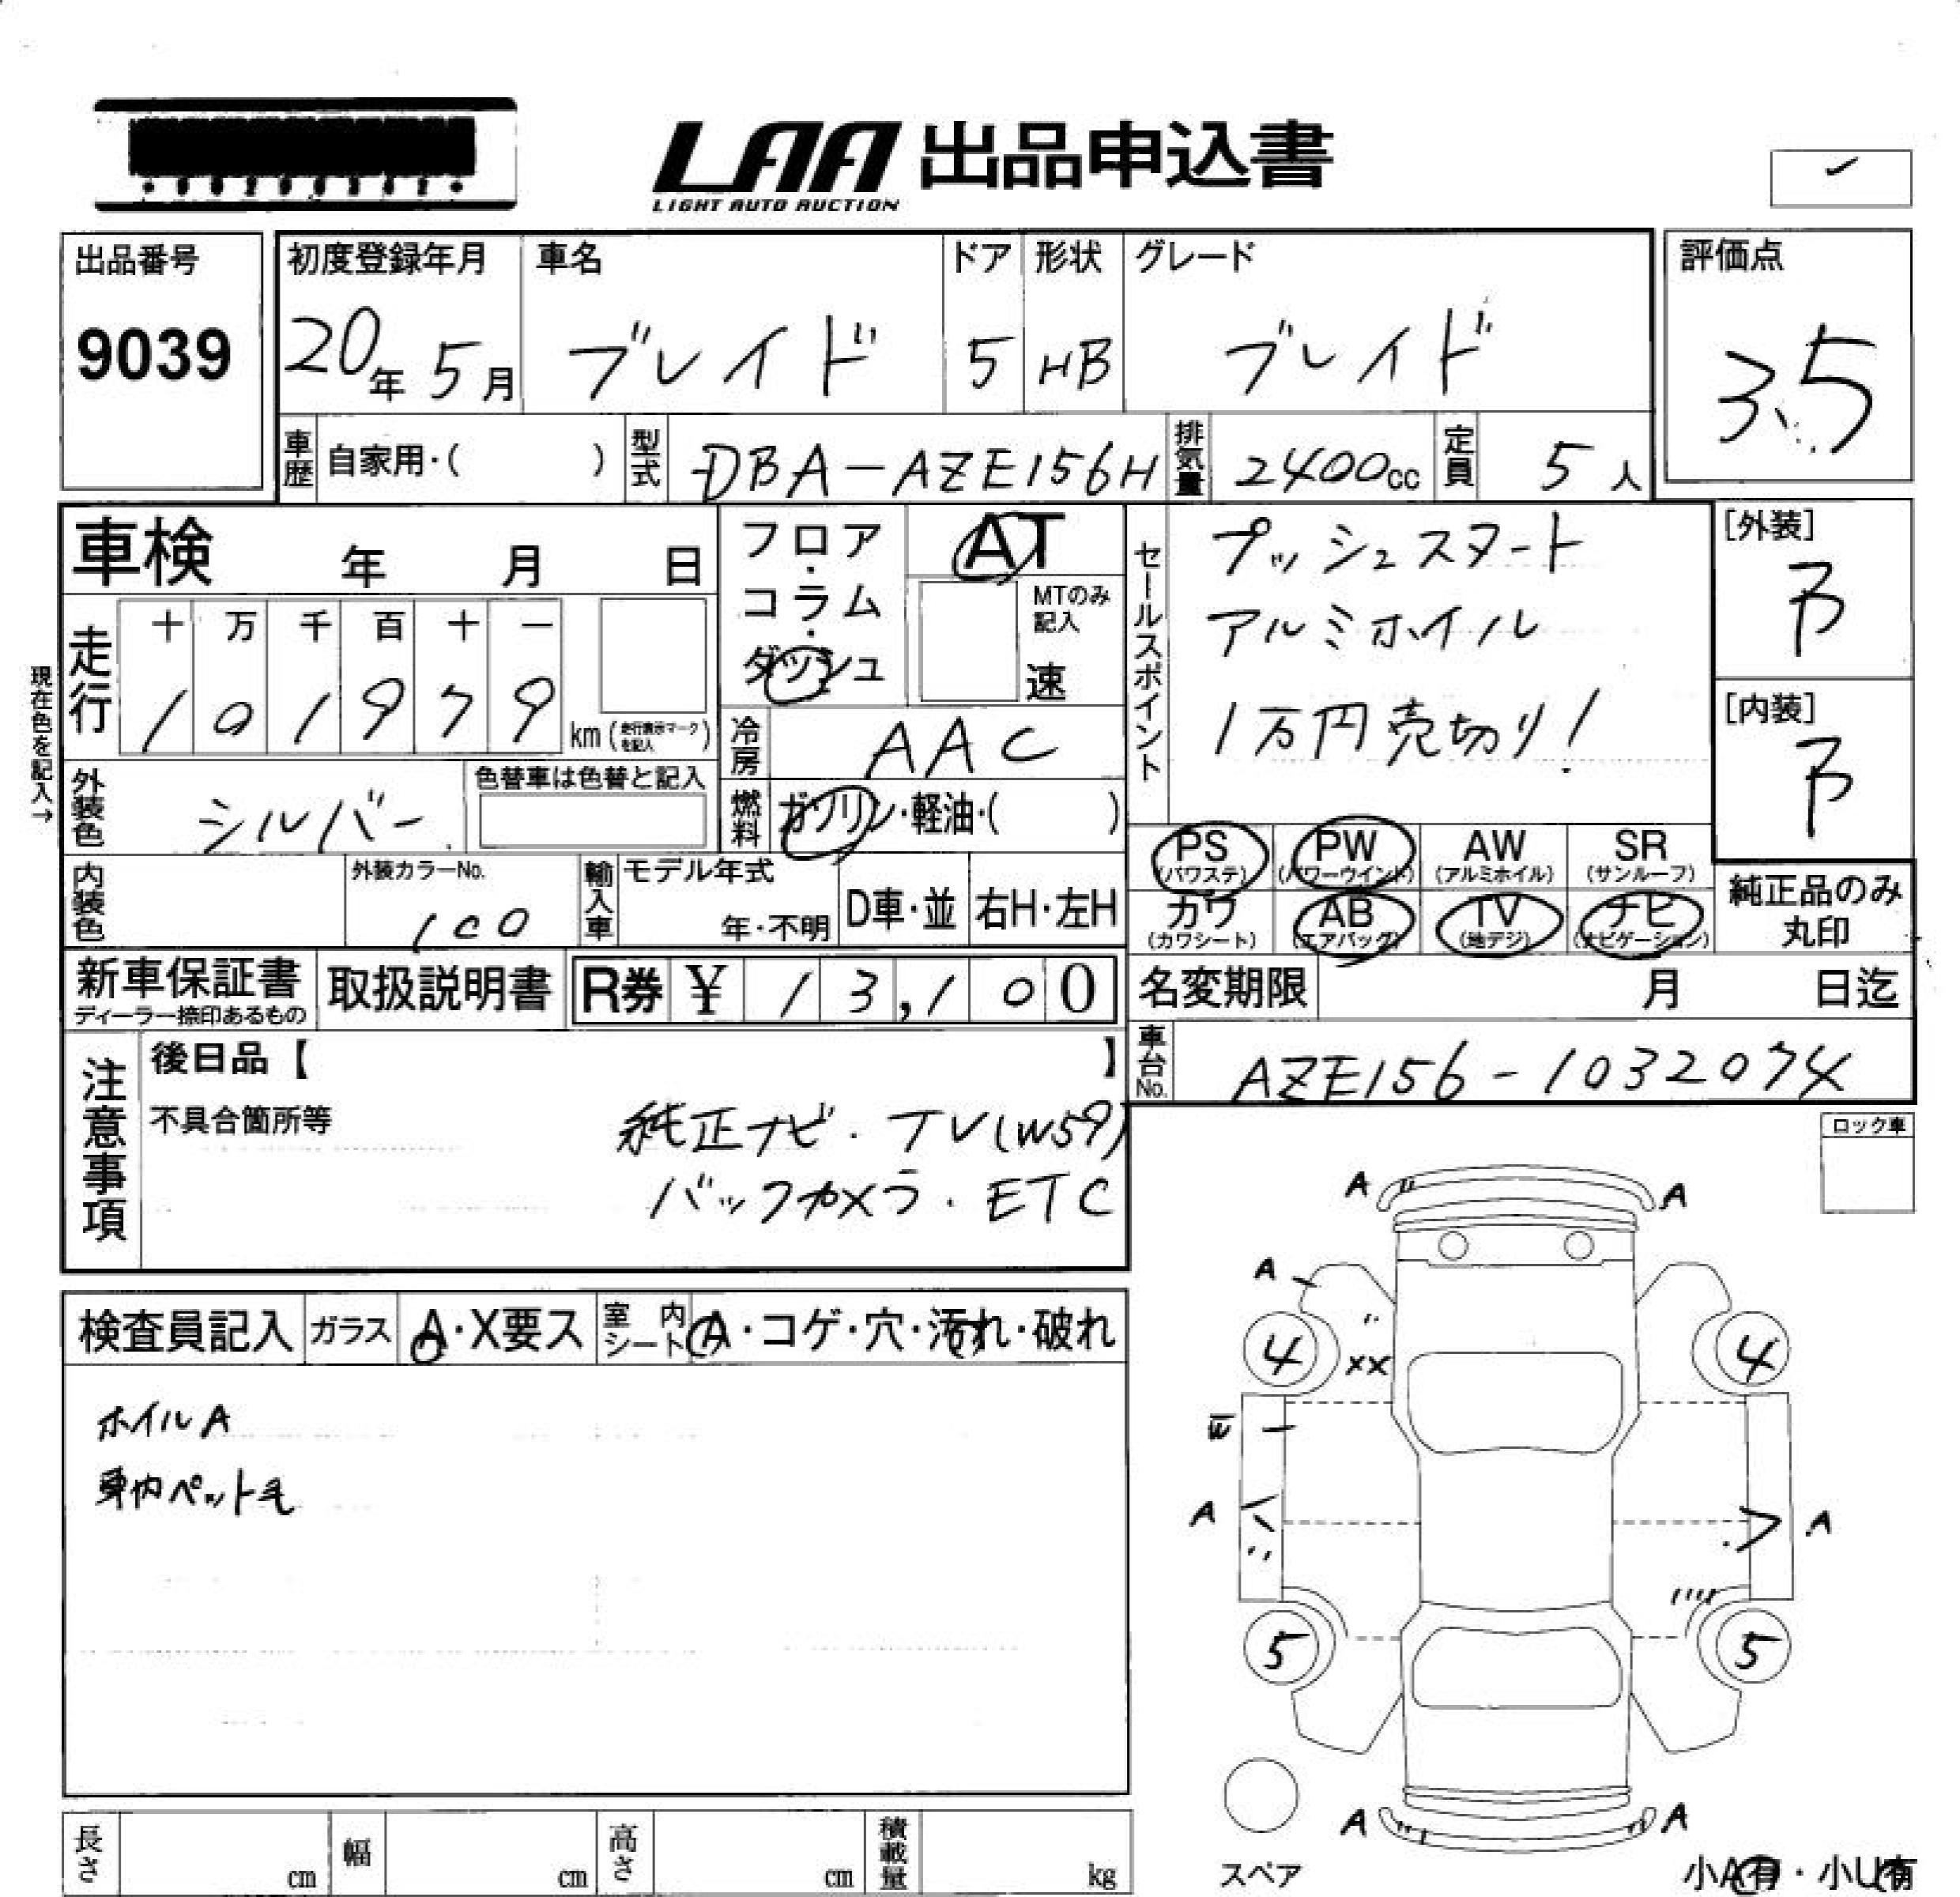 LAA 出品申込書
LIGHT AUTO AUCTION
出品番号
9039
初度登録年月
20年 5月
車名
ブレイド
ドア
5
形状
HB
グレード
ブレイド
評価点
3.5
車歴 自家用・( )
型式 DBA-AZE156H
排気量 2400cc
定員 5人
車検 年 月 日
走行
十 万 千 百 十 一
1 0 1 9 7 9
km (走行表示マークを記入)
現在色を記入→
フロア・コラム・ダッシュ
AT
MTのみ記入
速
冷房 AAC
燃料 ガソリン・軽油・( )
セールスポイント
プッシュスタート
アルミホイル
1万円売切り!
[外装]
B
[内装]
B
外装色 シルバー
色替車は色替と記入
内装色
外装カラーNo.
1C0
輸入車
モデル年式
年・不明
D車・並
右H・左H
PS (パワステ)
PW (パワーウインド)
AW (アルミホイル)
SR (サンルーフ)
カワ (カワシート)
AB (エアバッグ)
TV (地デジ)
ナビ (ナビゲーション)
純正品のみ
丸印
新車保証書
ディーラー捺印あるもの
取扱説明書
R券 ¥ 13,100
名変期限 月 日迄
車台No. AZE156-1032074
注意事項
後日品【 】
不具合箇所等
純正ナビ・TV(W59)
バックカメラ・ETC
ロック車
検査員記入
ガラス A・X要ス
室内シート A・コゲ・穴・汚れ・破れ
ホイルA
車内ペット毛
A A
A
4 XX 4
W
A A
5 5
A A
スペア
小A有・小U有
長さ cm
幅 cm
高さ cm
積載量 kg